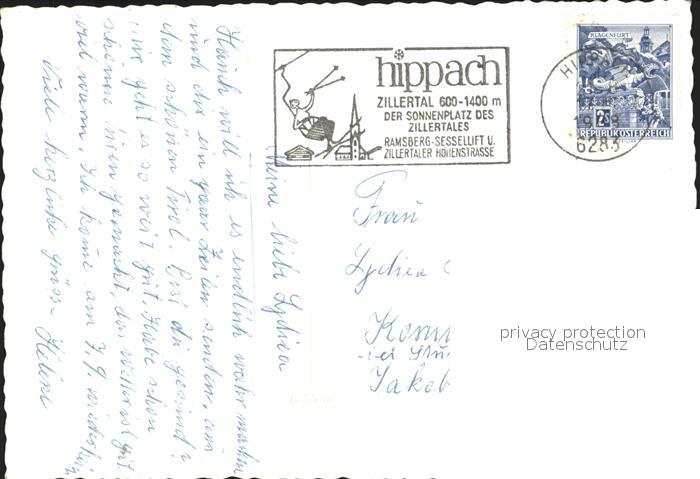 hippach
ZILLERTAL 600-1400 m
DER SONNENPLATZ DES
ZILLERTALES
RAMSBERG-SESSELLIFT U.
ZILLERTALER HÖHENSTRASSE
KLAGENFURT
2S
REPUBLIK ÖSTERREICH
6283
Meine liebe Lydia
will ich es endlich wahr machen
und dir ein paar Zeilen senden, aus
dem schönen Tirol. Bist du gesund?
mir geht es so weit gut. Habe schon
schöne gemacht, das Wetter ist gut
viel warm. Ich komme am 7.9. wieder
viele herzliche Grüsse Helene
Frau
Lydia
Konr
bei
Jakob
privacy protection
Datenschutz